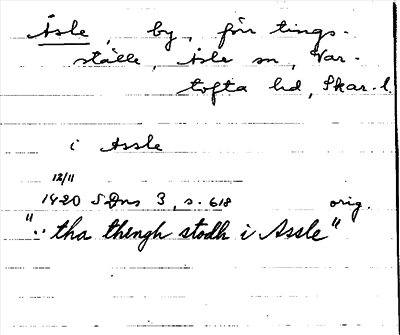 Åsle, by, förr tings-
ställe, Åsle sn, Var-
tofta hd, Skar. l.
i Assle
12/11
1420 SDns 3, s. 618 orig.
"·· tha thingh stodh i Assle"